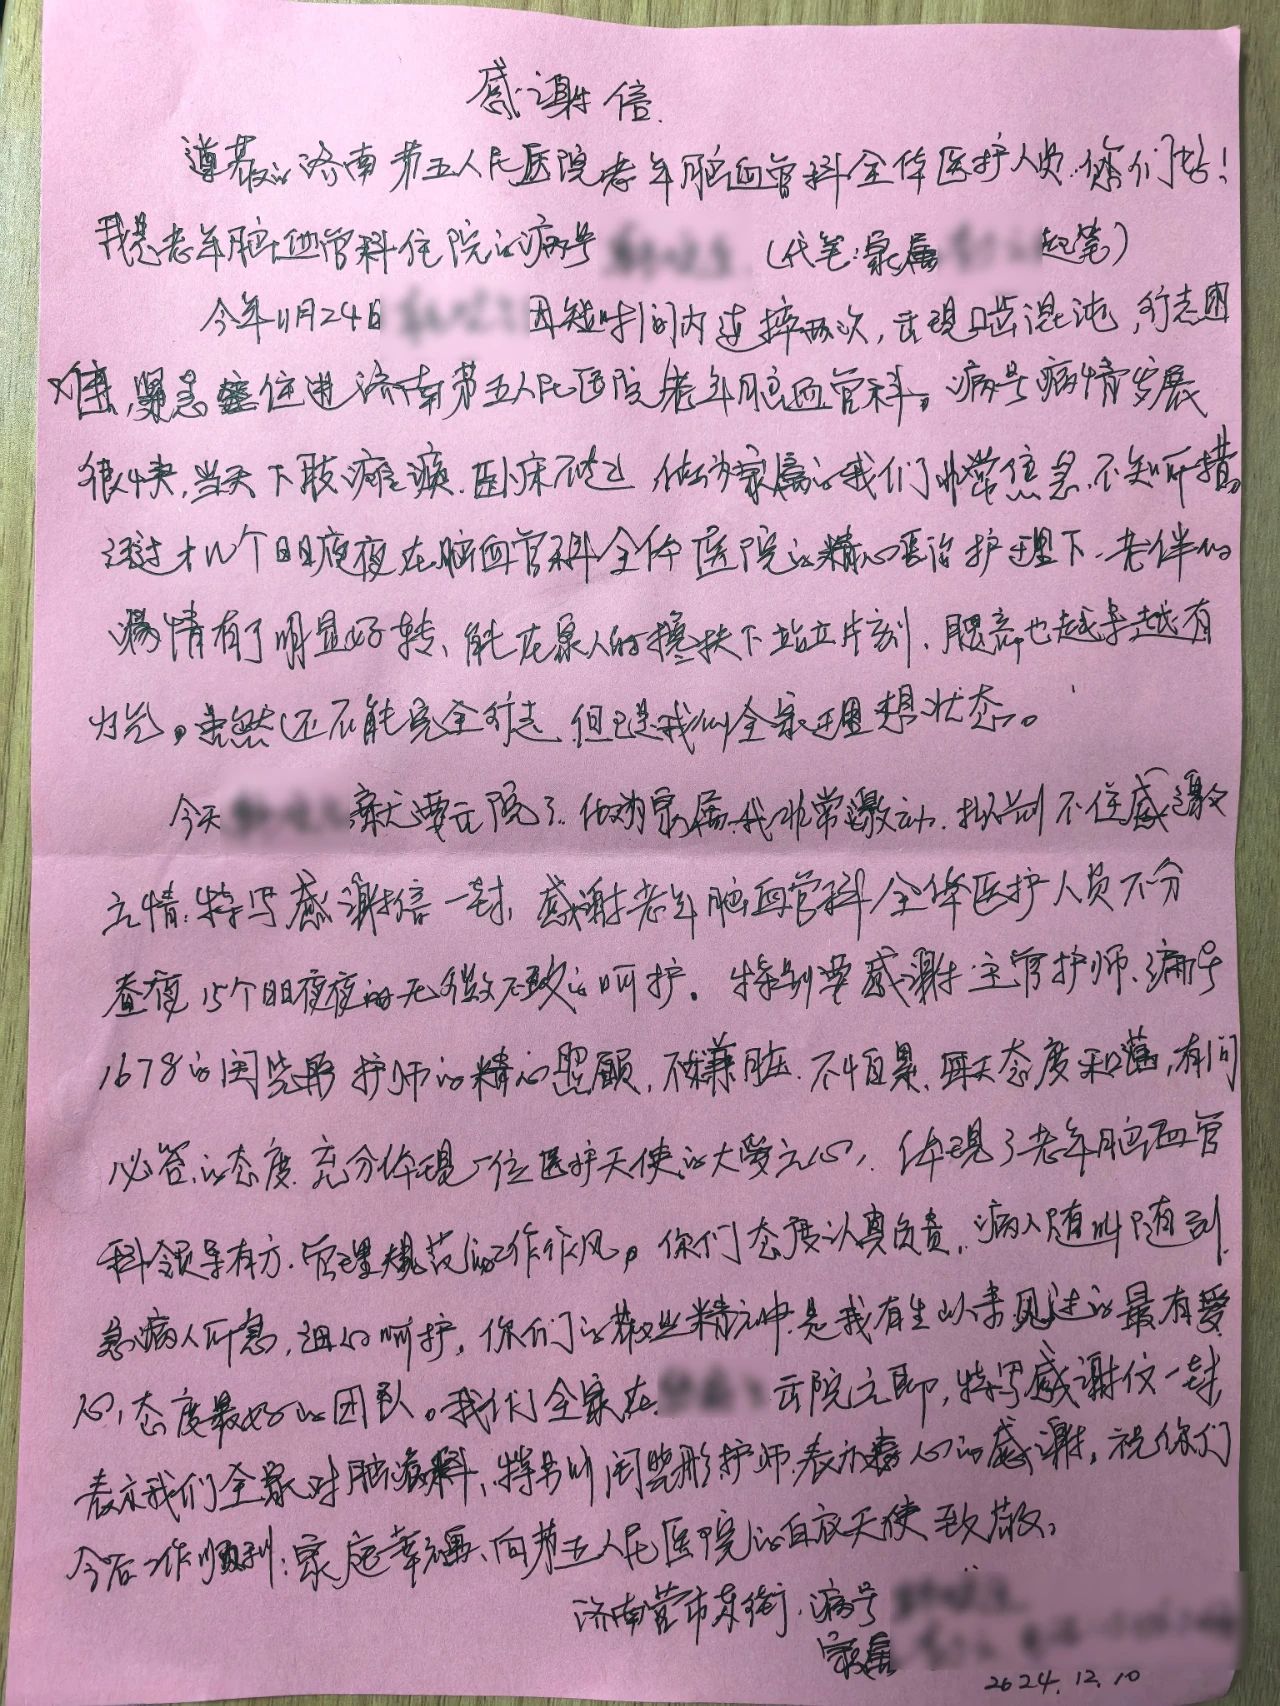 感谢信
尊敬的济南第五人民医院老年脑血管科全体医护人员.你们好!
我是老年脑血管科住院的病号 (代笔:家属 起笔)
今年11月24日 因短时间内连摔两次,出现口齿混沌,行走困
难,紧急住进济南第五人民医院老年脑血管科。病号病情发展
很快,当天下肢瘫痪.卧床不起 做为家属的我们非常焦急.不知所措.
经过十几个日日夜夜在脑血管科全体医院的精心医治护理下.老伴的
病情有了明显好转、能在家人的搀扶下站立片刻、腿部也越来越有
力气。虽然还不能完全行走 但已是我们全家理想状态。
今天 就要出院了.做为家属.我非常激动.抑制不住感激
之情:特写感谢信一封,感谢老年脑血管科全体医护人员不分
昼夜15个日日夜夜的无微不致的呵护。特别要感谢主管护师、病号
1678的闫晓彤护师的精心照顾,不嫌脏.不怕累、每天态度和蔼,有问
必答的态度.充分体现一位医护天使的大爱之心,体现了老年脑血管
科领导有方.管理规范的工作作风。你们态度认真负责,病人随叫随到.
急病人所急,细心呵护,你们的敬业精神.是我有生以来见过的最有爱
心,态度最好的团队。我们全家在 出院之即,特写感谢信一封,
表示我们全家对脑病科、特别闫晓彤护师.表示衷心的感谢,祝你们
今后工作顺利:家庭幸福、向第五人民医院的白衣天使致敬、
济南营市东街.病号
家属
2024.12.10